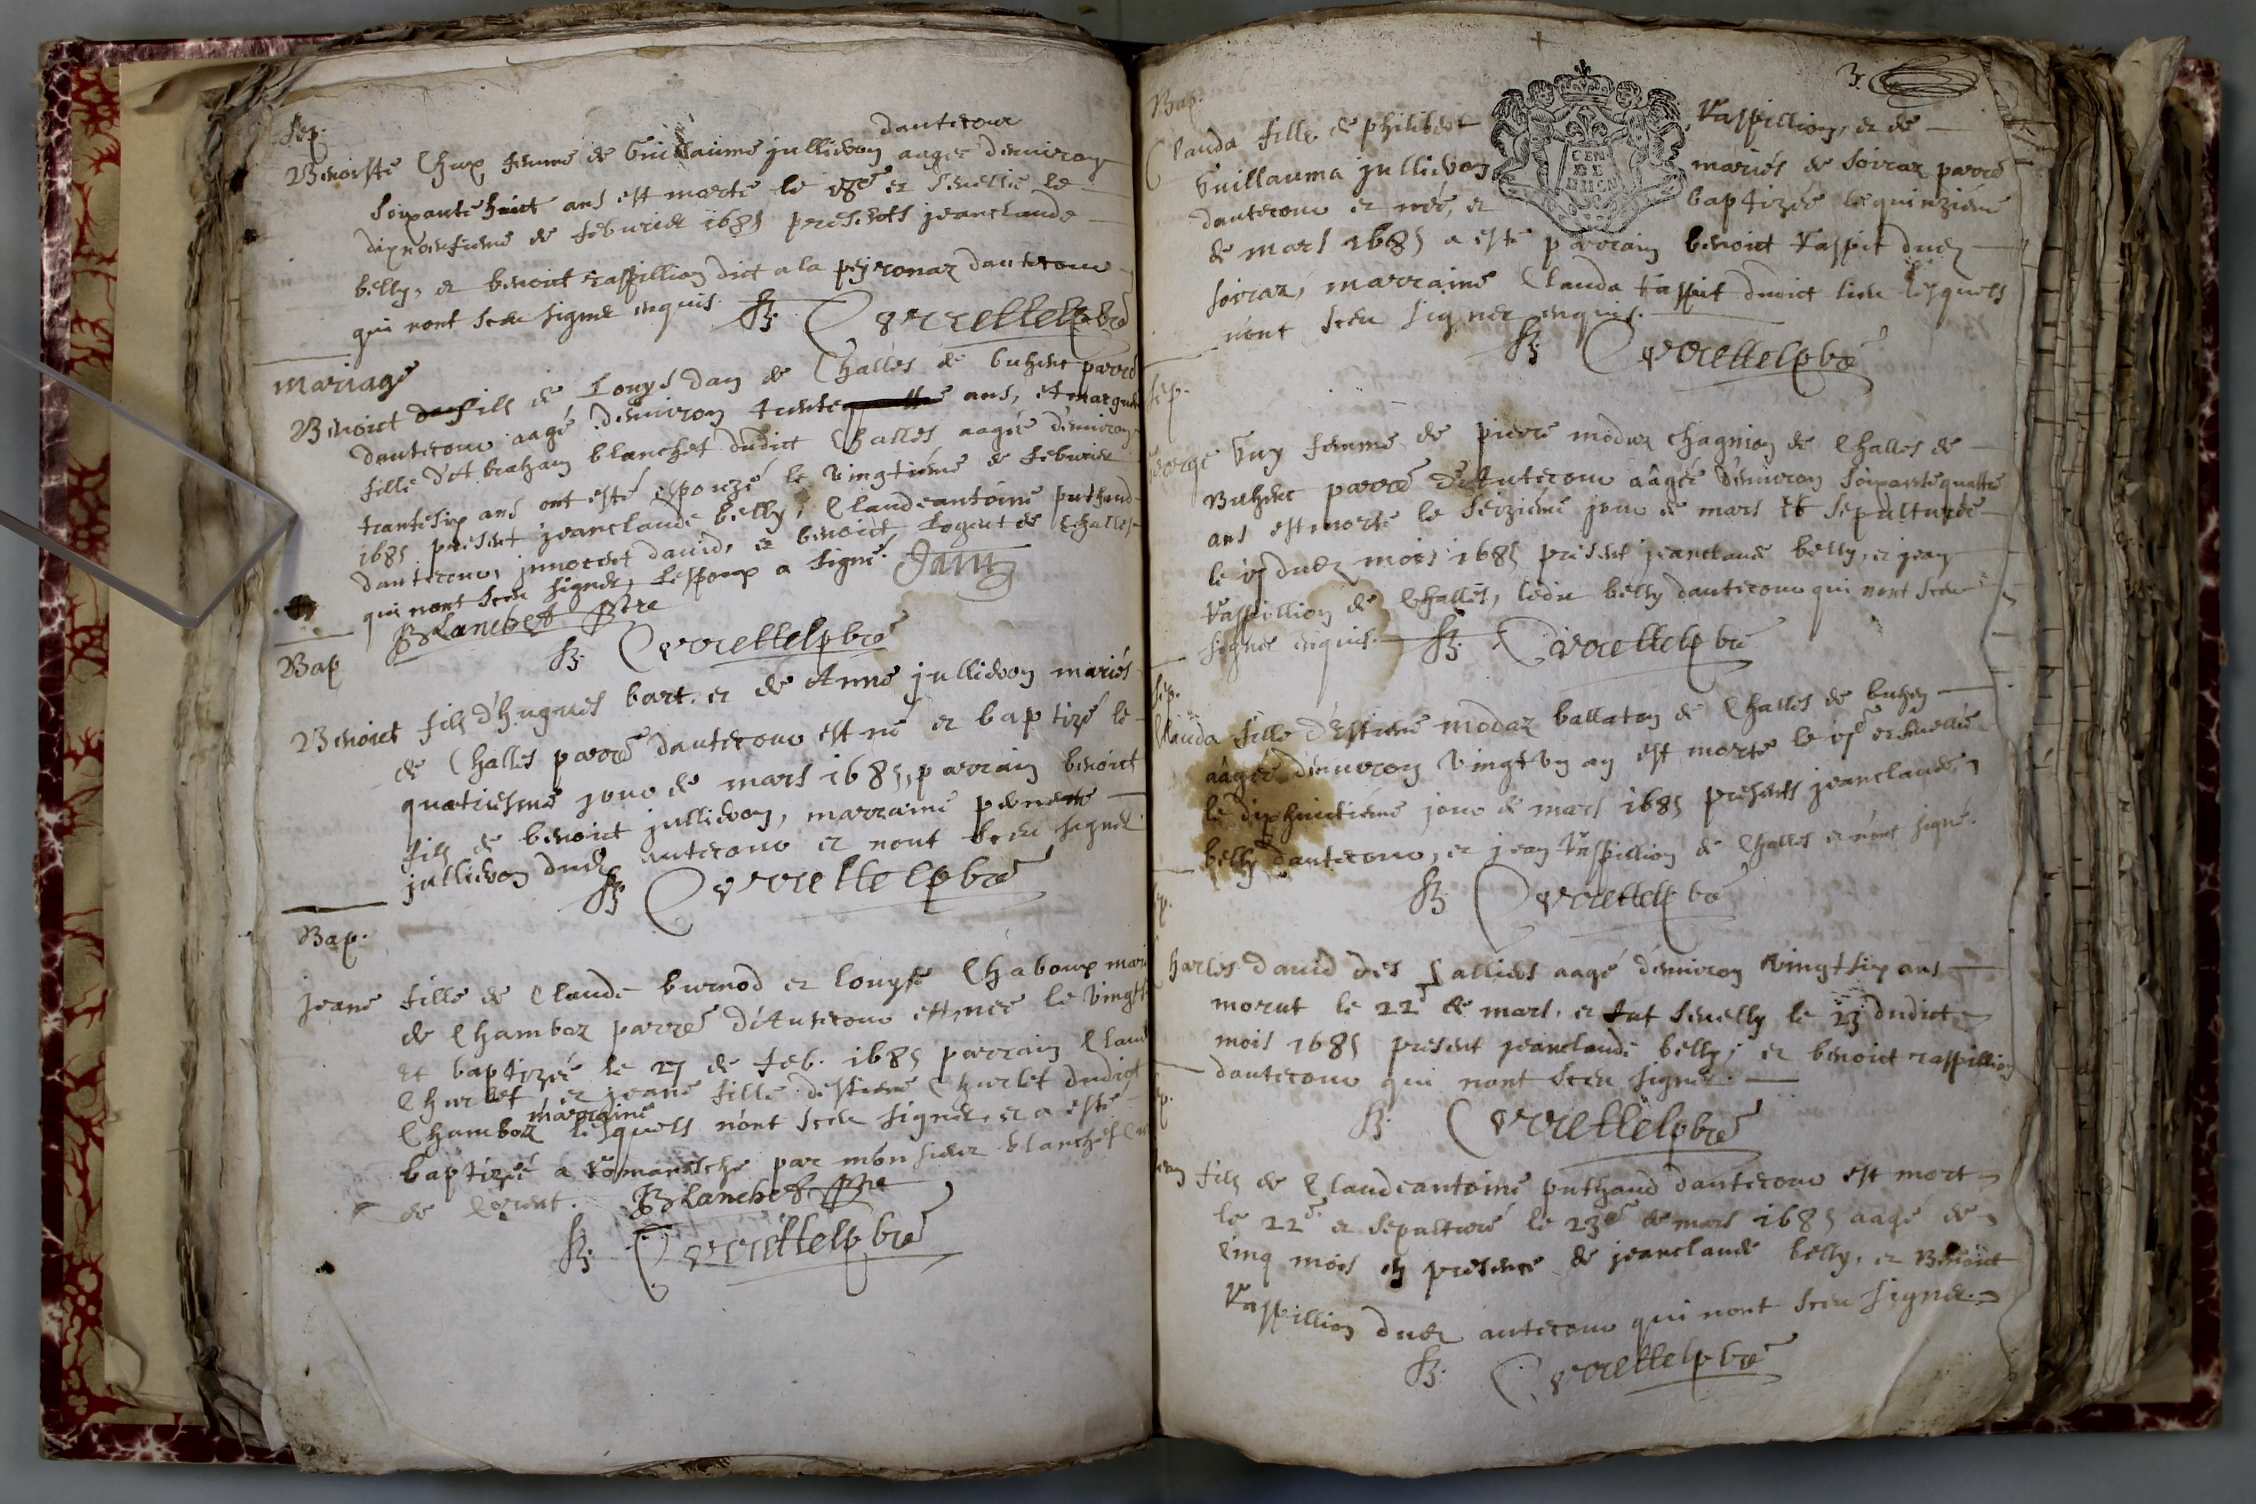 Sep.
dantecour
Benoiste Chap femme de Guillaume jullieron aagee denviron
soixante huict ans est morte le 18e et sevelie le
dixneufieme de feburier 1685 presents jeanclaude
belly, et benoict raspillion dict a la peyronar dantecour
qui nont sceu signer enquis.
mariage
Benoict fils de Louys dan de Challes de buhenc parre
dantecour aagé denviron trente ans, et margue
fille d'Abraham blanchet dudict Challes aagée denviron
trantesix ans ont esté espouzé le vingtieme de feburier
1685 present jeanclaude belly, Claudeantoine puthaud
dantecour, innocent david, et benoict Logeut de Challes
qui nont sceu signer, lespoux a signé. Dam
Blanchet ptre
Bap
Benoict fils d'hugues bart. et de Anne jullieron mariés
de Challes parre dantecour est né et baptizé le
quatriesme jour de mars 1685, parrain benoict
fils de benoict jullieron, marraine pernete
jullieron dud antecour et nont sceu signer
Bap.
jeane fille de Claude burnod et louyse Chaboux mari
de Chamboz parre d'Antecour est née le vingt
et baptizée le 27 de feb. 1685 parrain Claud
Churlet et jeane fille destiene Churlet dudict
marraine
Chamboz lesquels nont sceu signer, et a esté
baptizé a Romanesche par monsieur blanchet
de Corent. Blanchet ptre
3
Bap.
Clauda fille de philibert Raspillion, et de
Guillauma jullieron mariés de Soiraz parre
dantecour et née, et baptizée le quinzieme
de mars 1685 a esté parrain benoict Raspit dud
soiraz, marraine Clauda raspit dudict lieu lesquels
nont sceu signer enquis.
Sep.
George Guy femme de pierre modaz chagnion de Challes de
Buhenc parre d'Antecour aagée d'environ soixantequattre
ans est morte le seizieme jour de mars et sepulturée
le dud mois 1685 present jeanclaude belly, et jean
Raspillion de Challes, ledit belly dantecour qui nont sceu
signer enquis.
Sep.
Clauda fille d'Estiene modaz ballaton de Challes de buhen
aagée denviron vingt un an est morte le et sevelie
le dixhuictieme jour de mars 1685 presents jeanclaude
belly dantecour, et jean Raspillion de Challes et nont signé.
Charles David des Salliers aagé denviron vingtsix ans
morut le 22e de mars, et fut sevelly le 23 dudict
mois 1685 present jeanclaude belly, et benoict raspillion
dantecour qui nont sceu signer.
fils de Claudeantoine puthaud dantecour est mort
le 22e et sepulturé le 23e de mars 1685 aagé de
cinq mois en presence de jeanclaude belly, et Benoict
Raspillion dud antecour qui nont sceu signer.